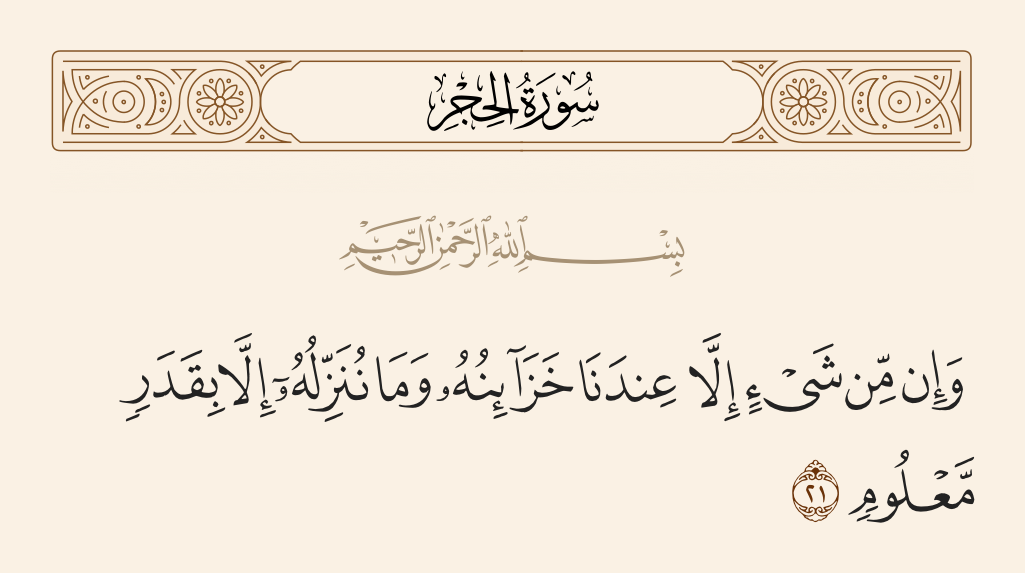 سُورَةُ الحِجْرِ
بِسْمِ ٱللَّهِ ٱلرَّحْمَٰنِ ٱلرَّحِيمِ
وَإِن مِّن شَىْءٍ إِلَّا عِندَنَا خَزَآئِنُهُۥ وَمَا نُنَزِّلُهُۥٓ إِلَّا بِقَدَرٍ
مَّعْلُومٍ ٢١